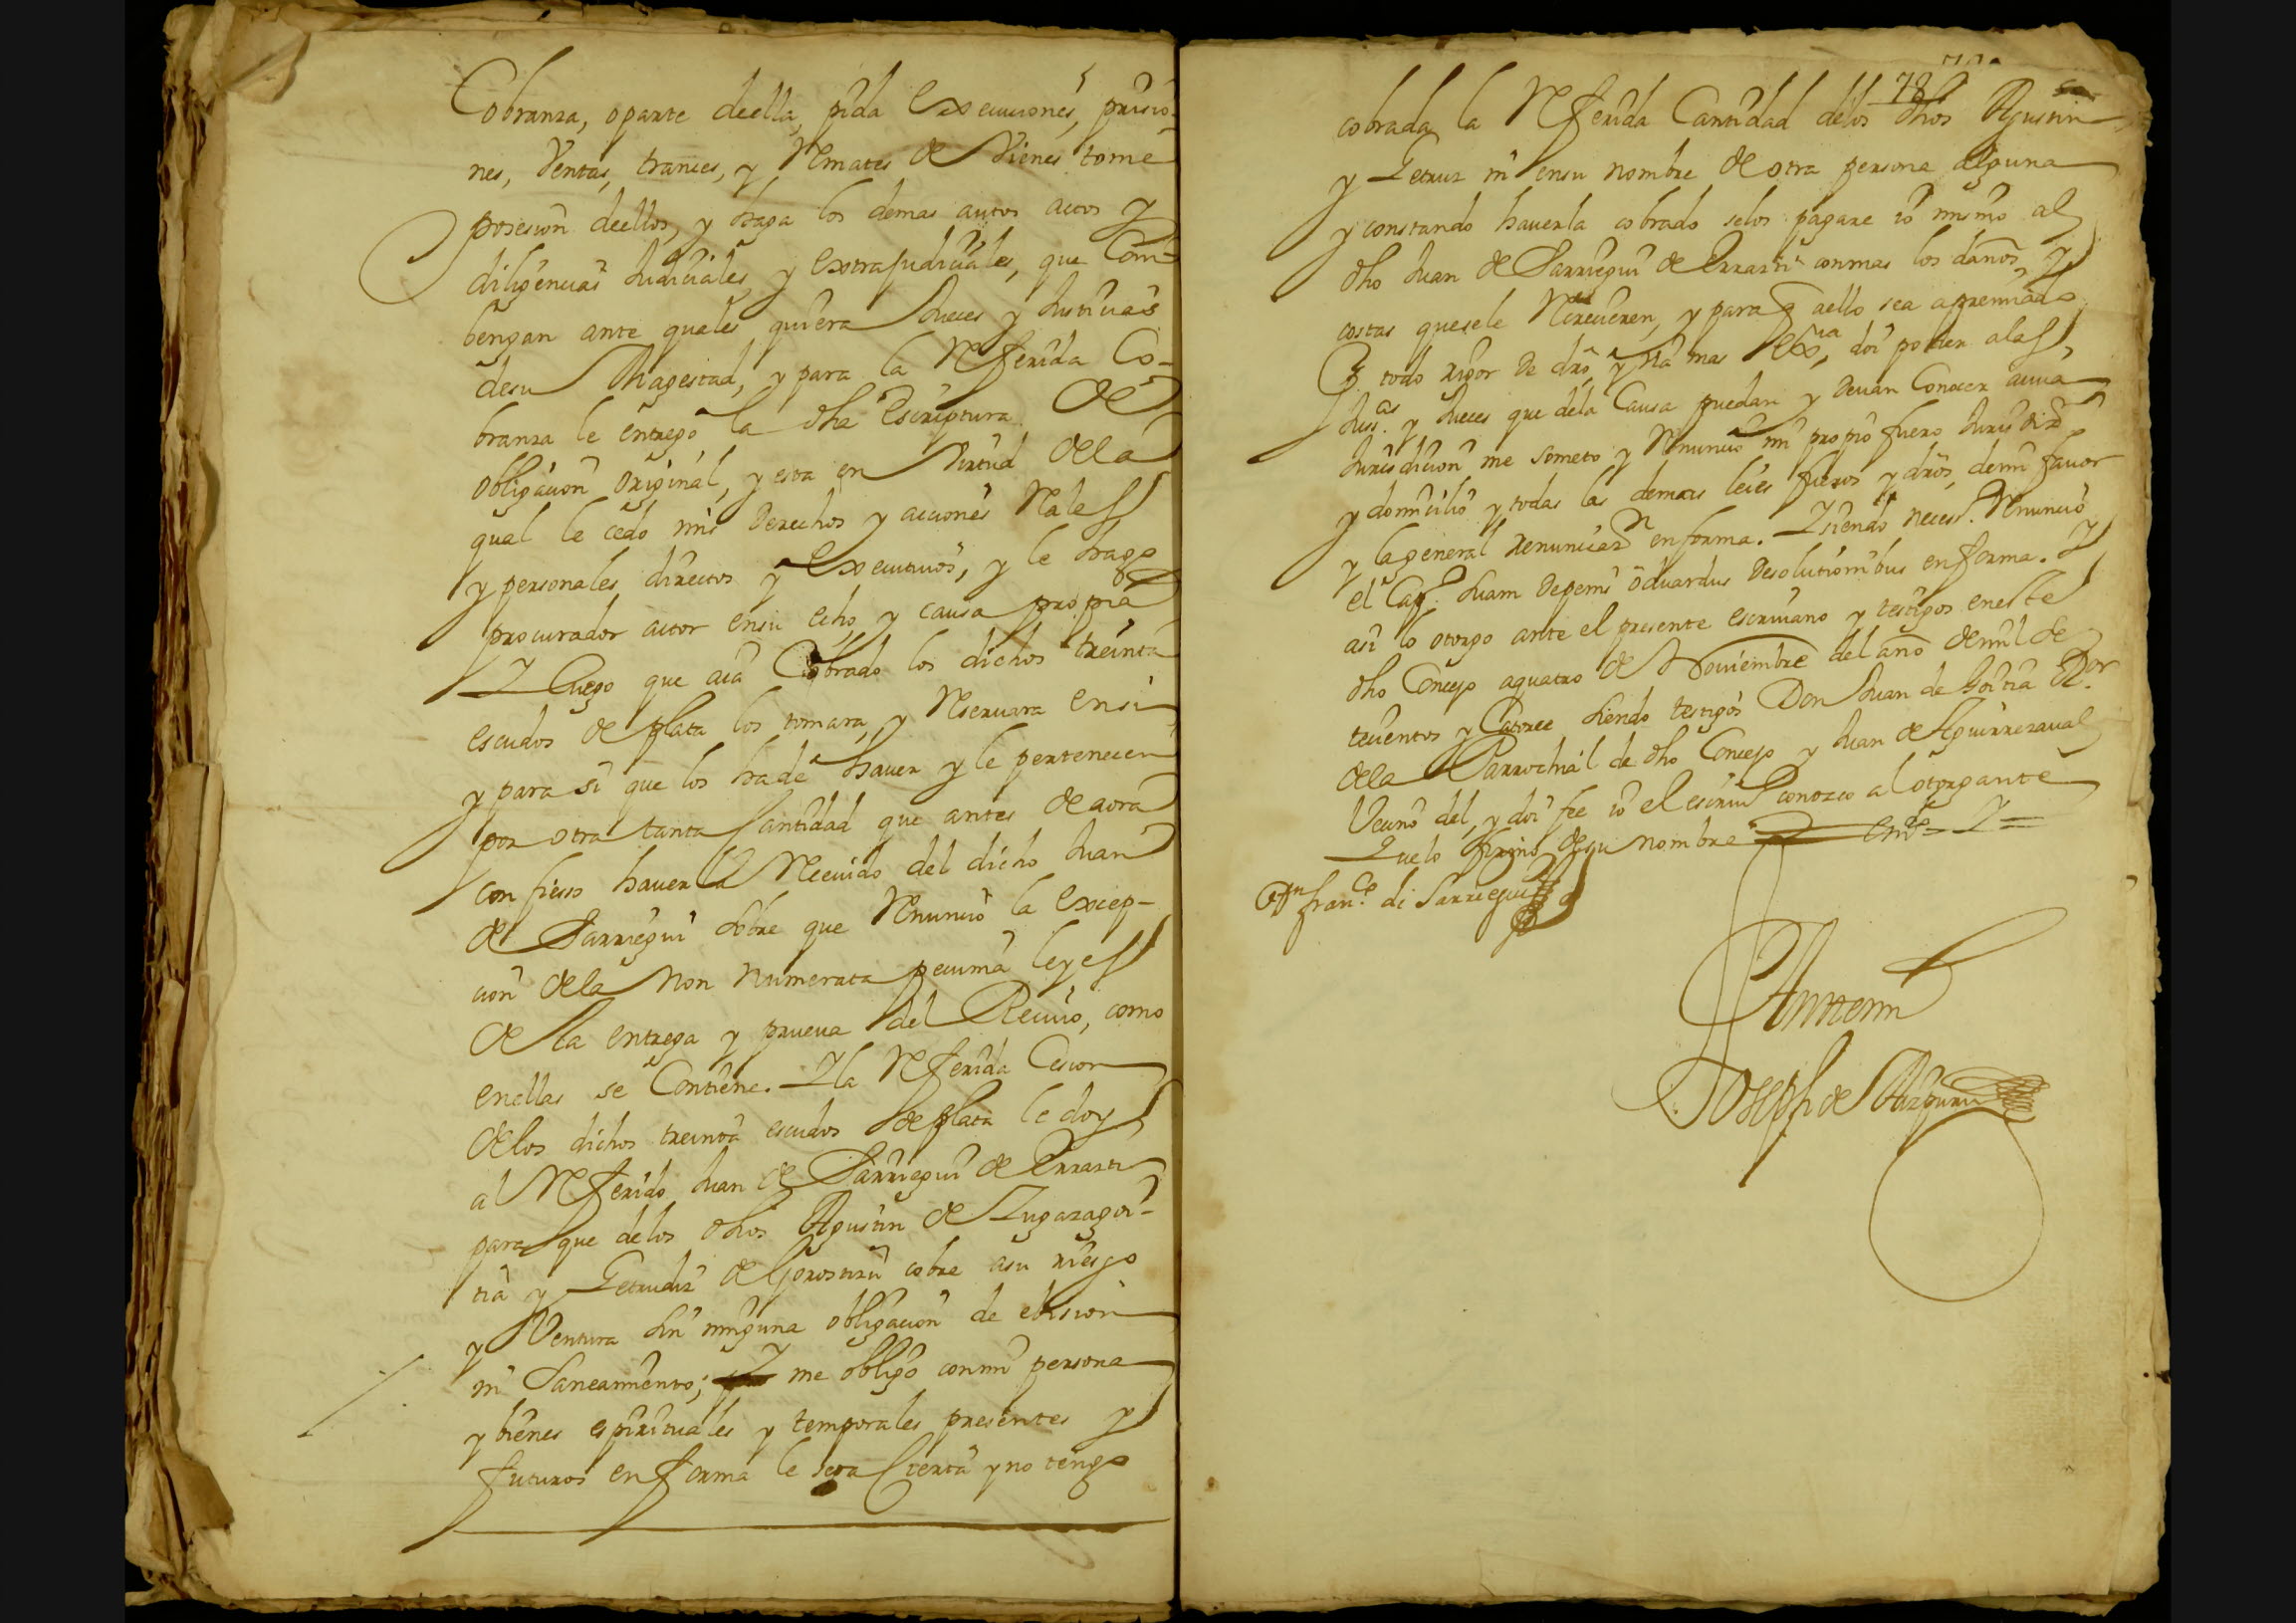 Cobranza, oparte deella, pida Execuciones, prisio-
nes, Ventas, trances, y Remates de Vienes tome
posesion deellos, y haga los demas autos actos y
diligencias Judiciales y extrajudiciales, que Com-
bengan ante quales quiera Jueces y Justicias
desu Magestad, y para la Referida Co-
branza le entrego la dha Escriptura de
obligacion original, y esta en Virtud dela
qual le cedo mis derechos y acciones Reales
y personales, directos y Executivos, y le hago
procurador actor ensu echo y causa propia
Y luego que aia Cobrado los dichos treinta
escudos de plata los tomara, y Reseruara ensi
y para si que los hade hauer y le pertenecen
por otra tanta Cantidad que antes de aora
confieso hauerla Receuido del dicho Juan
de Sarriegui sobre que Renuncio la excep-
cion dela non numerata pecunia leyes
de la entrega y prueua del Reciuo, como
enellas se Contiene. Y la Referida Cesion
delos dichos treinta escudos de plata le doy
al Referido Juan de Sarriegui de Errazti
para que delos dhos Agustin de Zugazagoi-
tia y Getrudiz de Gorostizu cobre asu riesgo
y Ventura sin ninguna obligacion de ebision
ni Saneamiento; Y me obligo conmi persona
y bienes espirituales y temporales presentes y
futuros enforma le sera Cierta y no tengo
78
cobrada la Referida Cantidad delos dhos Agustin
y Getruz ni ensu nombre de otra persona alguna
y constando hauerla cobrado selos pagare io mismo al
dho Juan de Sarriegui de Errazti conmas los daños y
costas quesele Recreceren, y para q aello sea apremiado
todo rigor de dro, y Via mas exva, doi poder alas
Juss.as y Jueces que dela Causa puedan y deuan Conocer acuia
Jurisdicion me someto y Renuncio mi propio fuero Jurisdizn
y domicilio y todas las demas leies fueros y dros, demi fauor
y lageneral renunciazn enforma. Y siendo necess.o Renuncio
el Cap.o Suam depenis oduardus desolutionibus enforma. Y
asi lo otorgo ante el presente escriuano y testigos eneste
dho Concejo aquatro de Nouiembre del año demil se
tecientos y Catorce siendo testigos Don Juan de Goitia
dela Parrochial de dho Concejo y Juan de Aguirrezaual
Vecino del, y doi fee io el escriuo Conozco al otorgante
Y uelo firmo desu nombre
franco de Sarriegui
Antemi
Joseph de Aizpuru